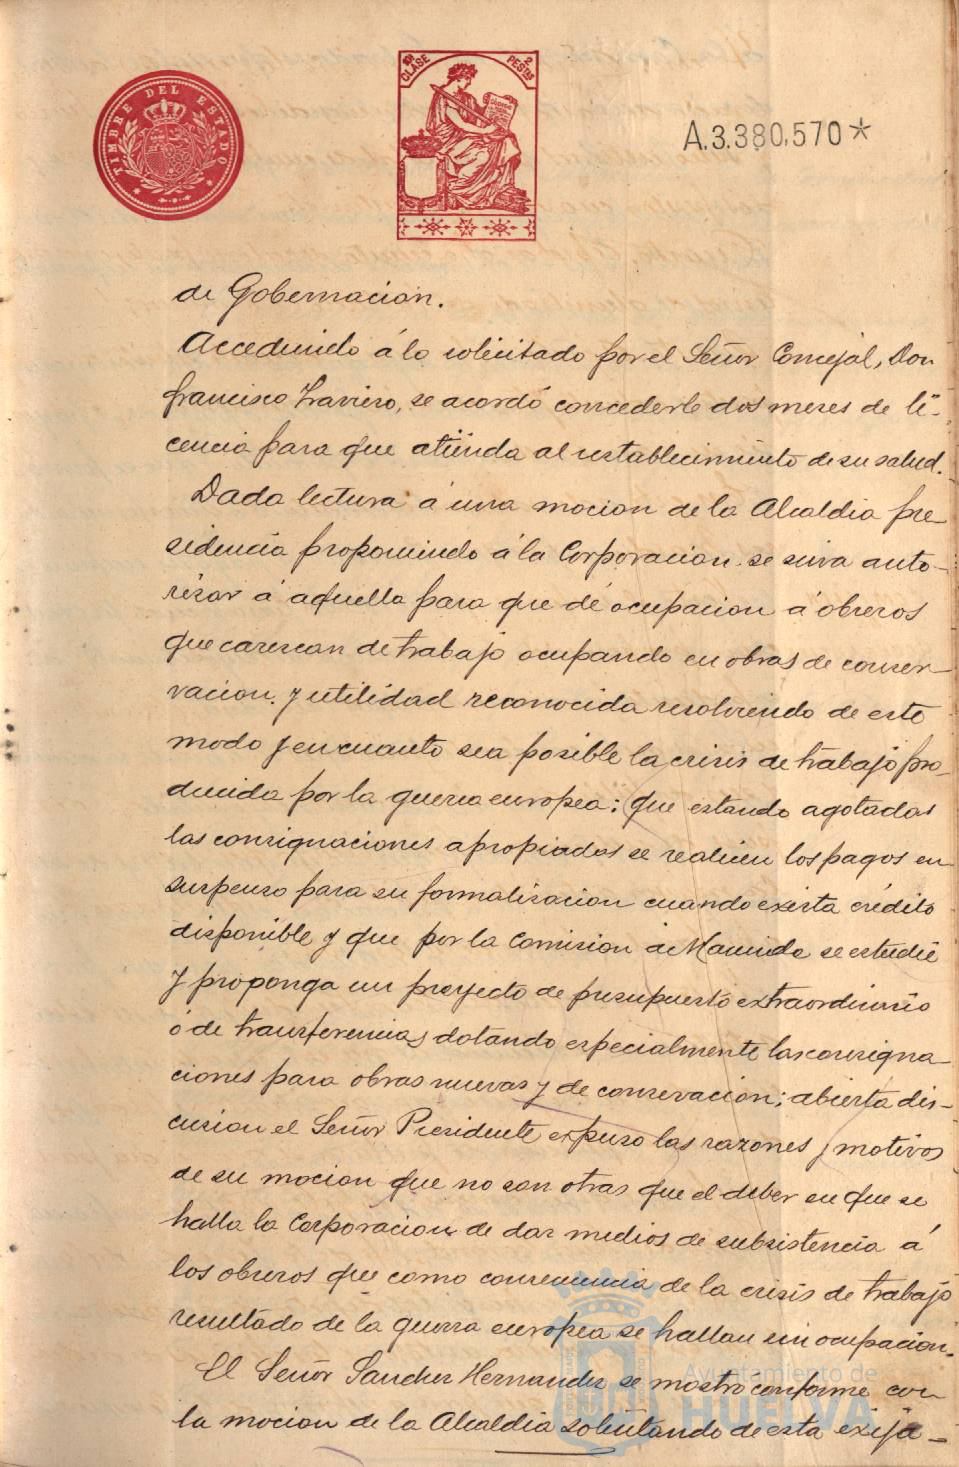 TIMBRE DEL ESTADO
10ª CLASE 2 PESTAS
A.3.380,570*
de Gobernacion.
Accediendo á lo solicitado por el Señor Concejal, Don
Francisco Traviero, se acordó concederle dos meses de li-
cencia para que atienda al restablecimiento de su salud.
Dada lectura á una mocion de la Alcaldia pre-
sidencia proponiendo á la Corporacion se sirva auto-
rizar á aquella para que dé ocupacion á obreros
que carezcan de trabajo ocupando en obras de conser-
vacion y utilidad reconocida resolviendo de este
modo y en cuanto sea posible la crisis de trabajo pro-
ducida por la guerra europea; que estando agotadas
las consignaciones apropiadas se realicen los pagos en
suspenso para su formalizacion cuando exista crédito
disponible y que por la Comision de Hacienda se estudie
y proponga un proyecto de presupuesto extraordinario
ó de transferencias dotando especialmente las consigna-
ciones para obras nuevas y de conservacion; abierta dis-
cusion el Señor Presidente expuso las razones y motivos
de su mocion que no son otras que el deber en que se
halla la Corporacion de dar medios de subsistencia á
los obreros que como consecuencia de la crisis de trabajo
resultado de la guerra europea se hallan sin ocupacion.
El Señor Sanchez Hernandez se mostro conforme con
la mocion de la Alcaldia solicitando de esta exija-
Ayuntamiento de
HUELVA